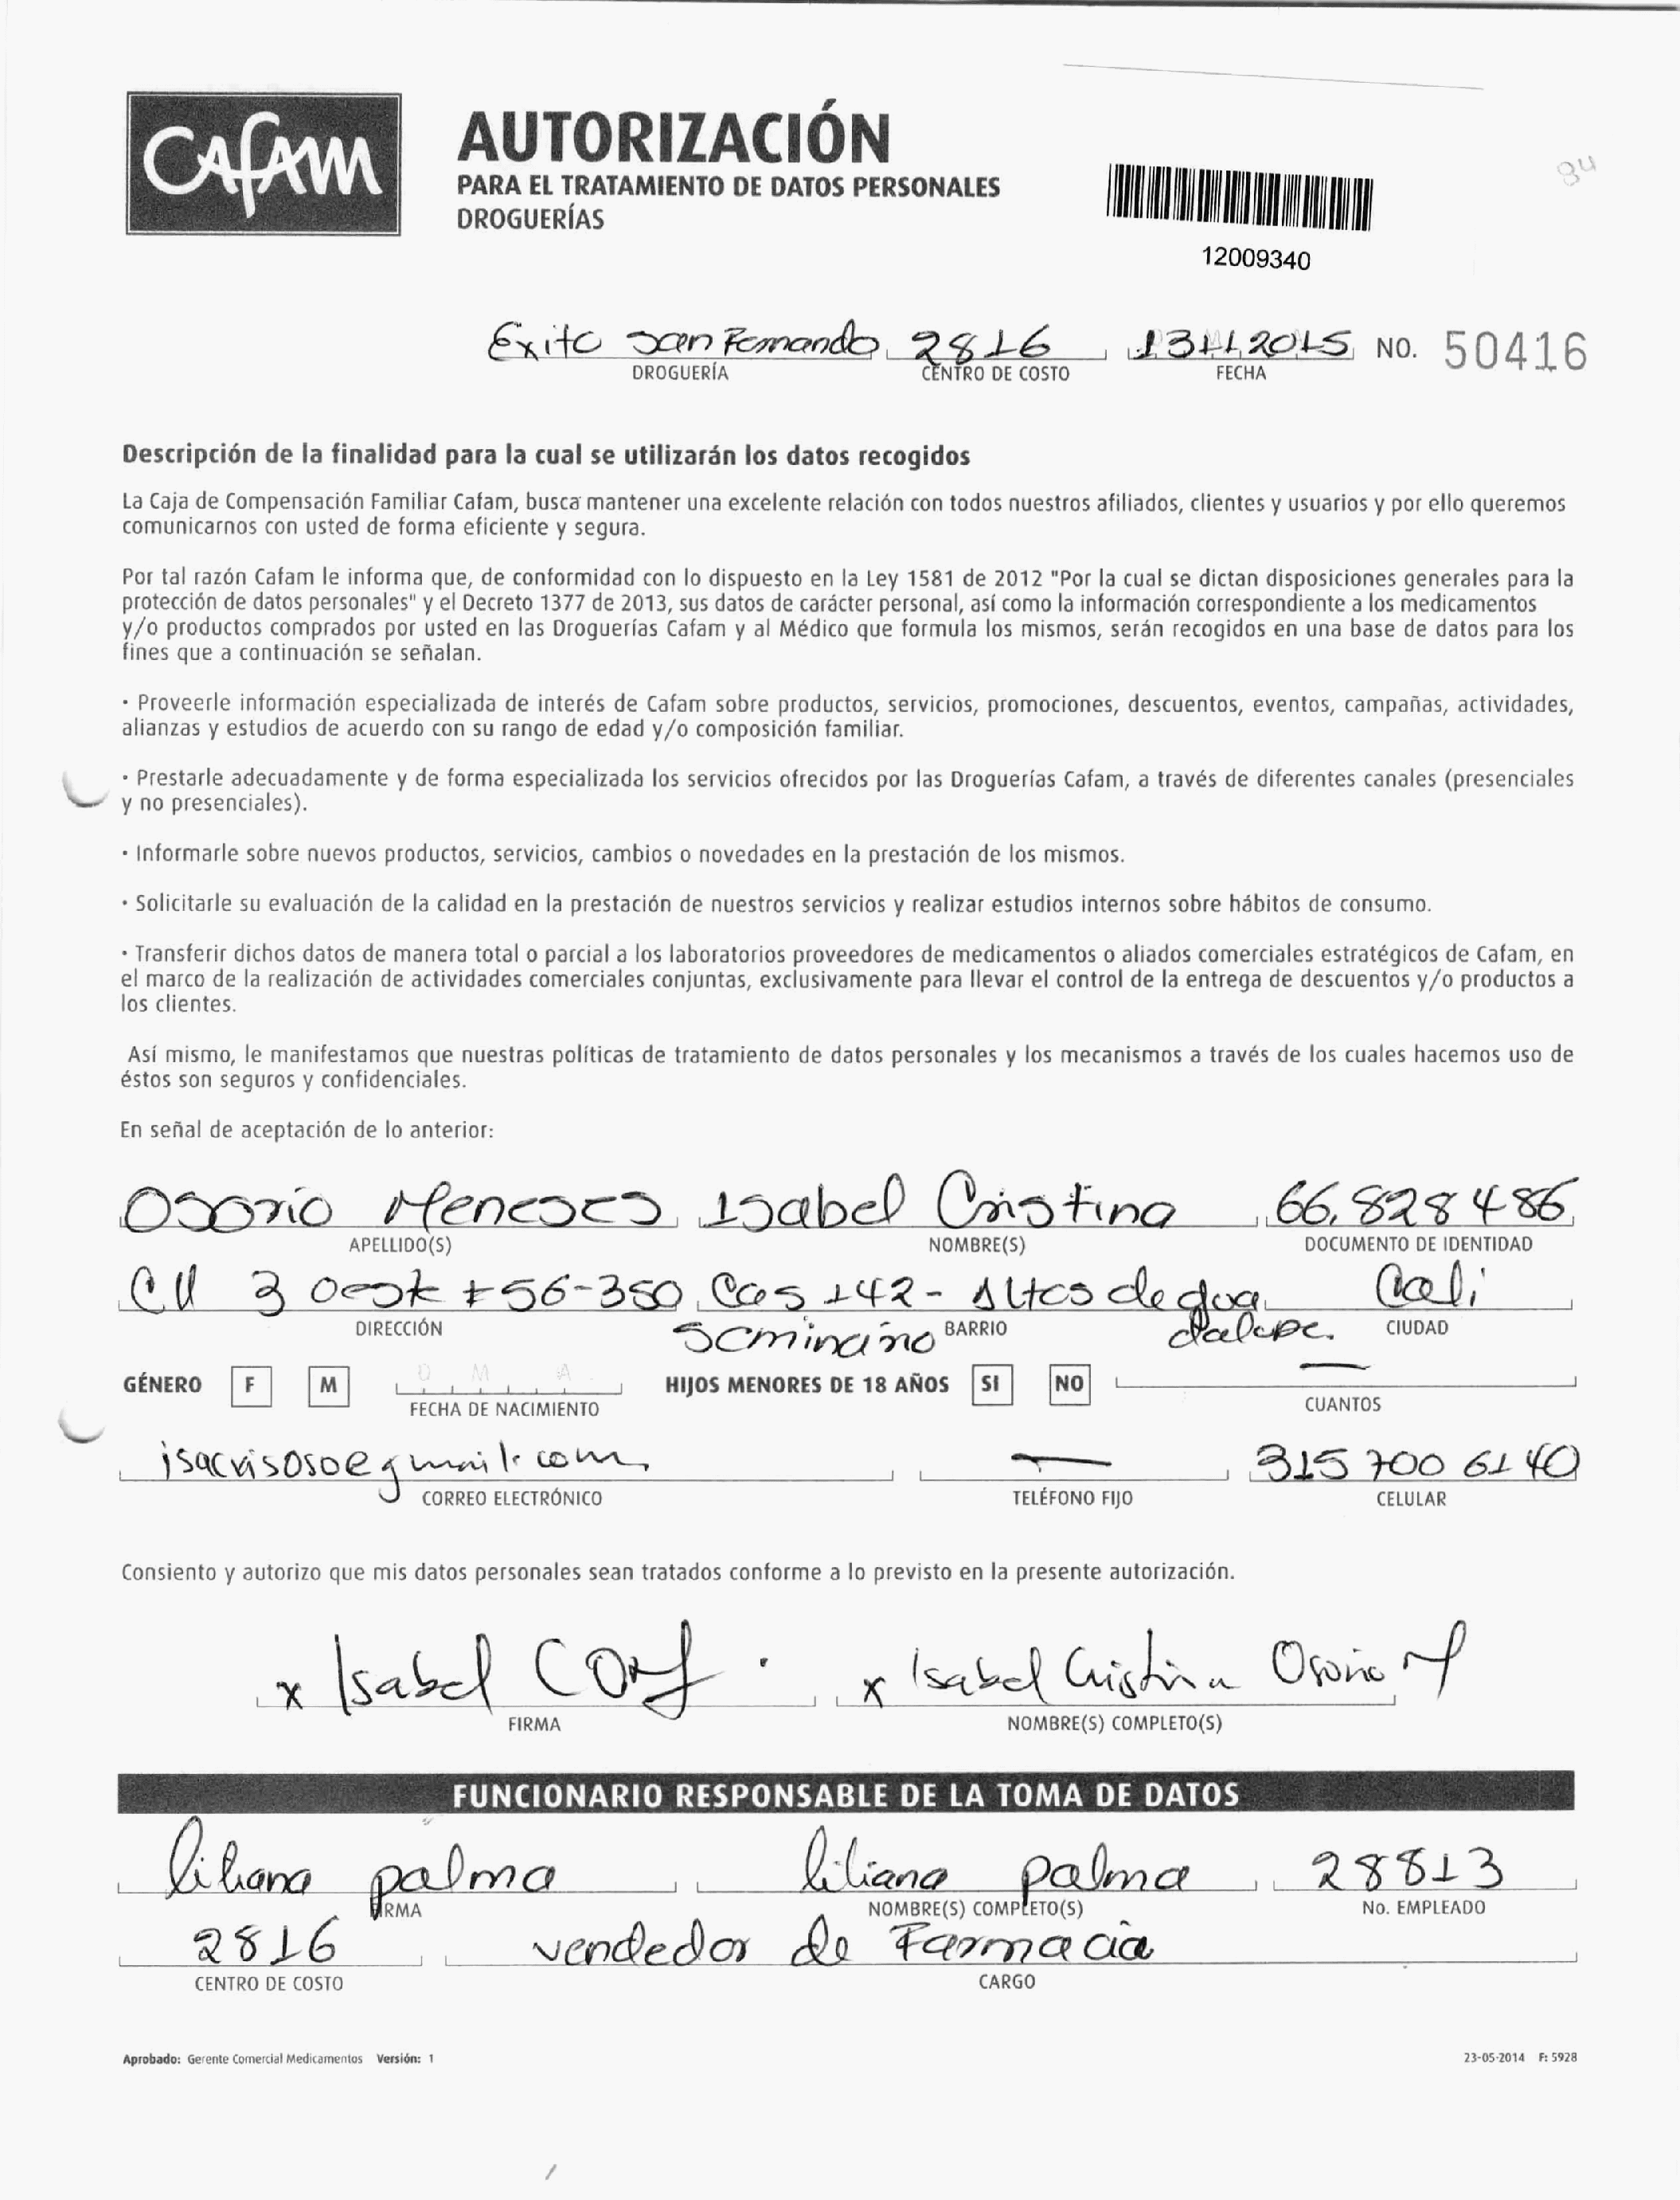 CAFAM
AUTORIZACIÓN
PARA EL TRATAMIENTO DE DATOS PERSONALES
DROGUERÍAS
84
12009340
Exito San Fernando 2816 13 11 2015 NO. 50416
DROGUERÍA CENTRO DE COSTO FECHA
Descripción de la finalidad para la cual se utilizarán los datos recogidos
La Caja de Compensación Familiar Cafam, busca mantener una excelente relación con todos nuestros afiliados, clientes y usuarios y por ello queremos
comunicarnos con usted de forma eficiente y segura.
Por tal razón Cafam le informa que, de conformidad con lo dispuesto en la Ley 1581 de 2012 "Por la cual se dictan disposiciones generales para la
protección de datos personales" y el Decreto 1377 de 2013, sus datos de carácter personal, así como la información correspondiente a los medicamentos
y/o productos comprados por usted en las Droguerías Cafam y al Médico que formula los mismos, serán recogidos en una base de datos para los
fines que a continuación se señalan.
· Proveerle información especializada de interés de Cafam sobre productos, servicios, promociones, descuentos, eventos, campañas, actividades,
alianzas y estudios de acuerdo con su rango de edad y/o composición familiar.
· Prestarle adecuadamente y de forma especializada los servicios ofrecidos por las Droguerías Cafam, a través de diferentes canales (presenciales
y no presenciales).
· Informarle sobre nuevos productos, servicios, cambios o novedades en la prestación de los mismos.
· Solicitarle su evaluación de la calidad en la prestación de nuestros servicios y realizar estudios internos sobre hábitos de consumo.
· Transferir dichos datos de manera total o parcial a los laboratorios proveedores de medicamentos o aliados comerciales estratégicos de Cafam, en
el marco de la realización de actividades comerciales conjuntas, exclusivamente para llevar el control de la entrega de descuentos y/o productos a
los clientes.
Así mismo, le manifestamos que nuestras políticas de tratamiento de datos personales y los mecanismos a través de los cuales hacemos uso de
éstos son seguros y confidenciales.
En señal de aceptación de lo anterior:
Osorio Meneses Isabel Cristina 66.828486
APELLIDO(S) NOMBRE(S) DOCUMENTO DE IDENTIDAD
Cll 3 Oeste #56-350 Cas 142- Altos de gua Cali
DIRECCIÓN BARRIO dalupe. CIUDAD
GÉNERO F M D M A HIJOS MENORES DE 18 AÑOS SI NO —
FECHA DE NACIMIENTO CUANTOS
isacrisoso@gmail.com — 315 700 6140
CORREO ELECTRÓNICO TELÉFONO FIJO CELULAR
Consiento y autorizo que mis datos personales sean tratados conforme a lo previsto en la presente autorización.
x Isabel x Isabel Cristina Osorio M
FIRMA NOMBRE(S) COMPLETO(S)
FUNCIONARIO RESPONSABLE DE LA TOMA DE DATOS
liliana palma liliana palma 28813
FIRMA NOMBRE(S) COMPLETO(S) No. EMPLEADO
2816 vendedor de Farmacia
CENTRO DE COSTO CARGO
Aprobado: Gerente Comercial Medicamentos Versión: 1 23-05-2014 F: 5928